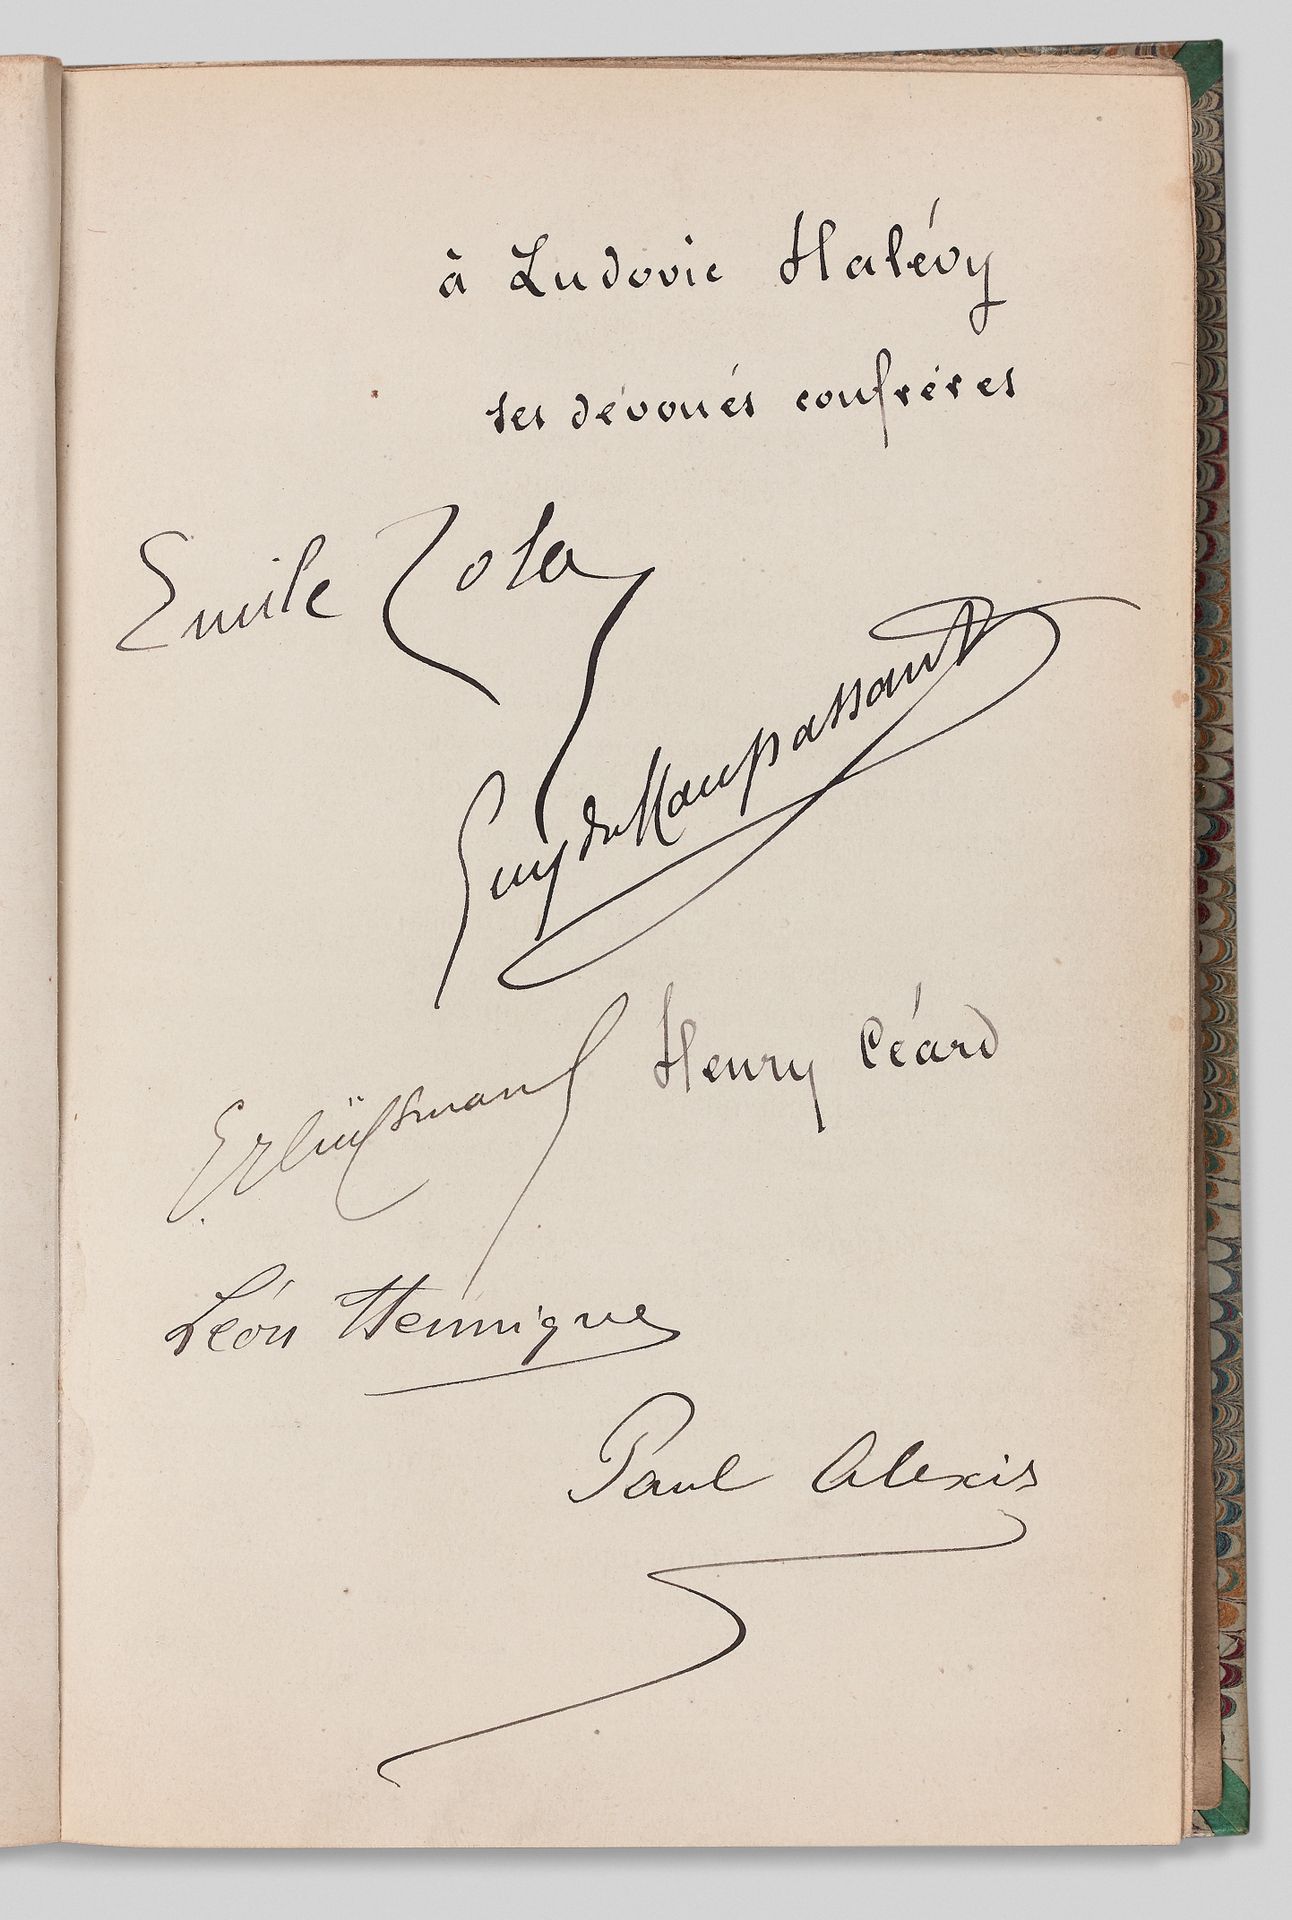 à Ludovic Halévy
ses dévoués confrères
Emile Zola
Guy de Maupassant
Henry Céard
Léon Hennique
Paul Alexis